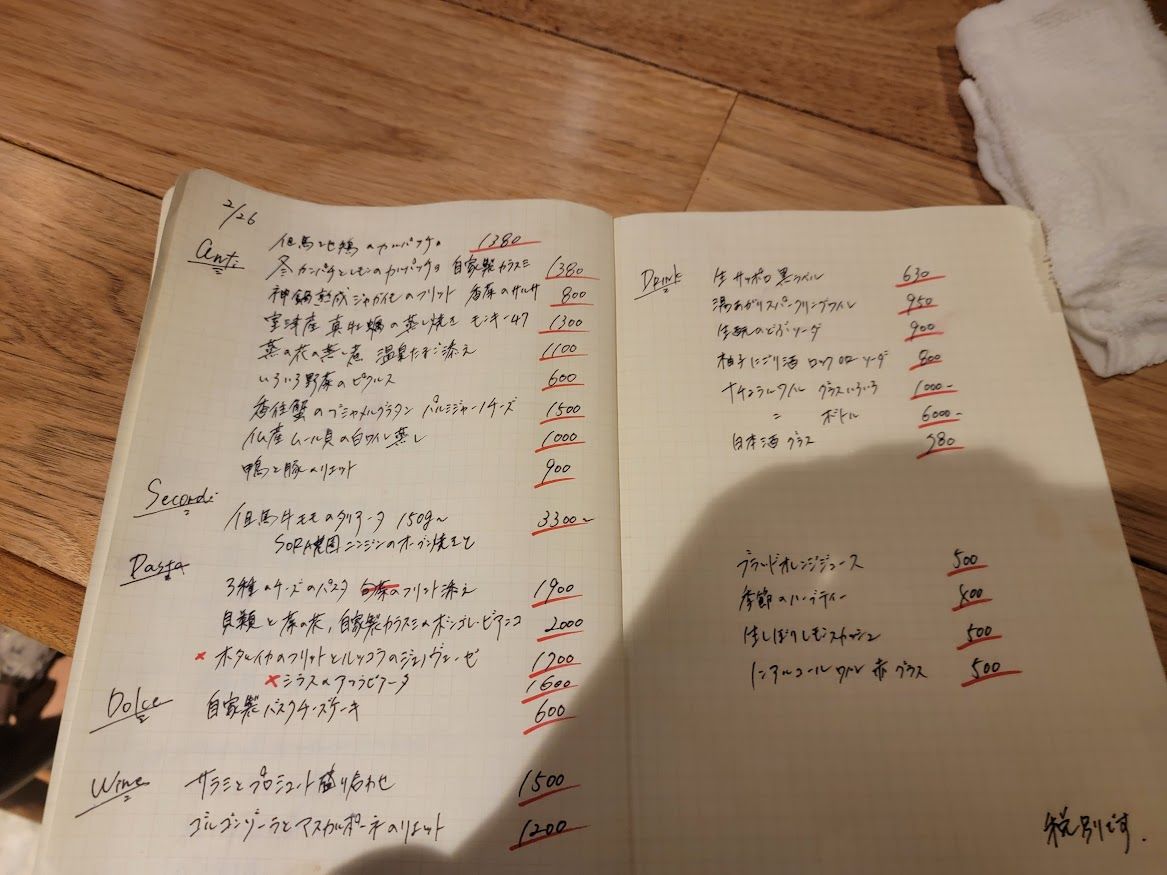 2/26
Anti
但馬地鶏のカルパッチョ 1380
冬カンパチとレモンのカルパッチョ 自家製カラスミ 1380
神鍋熟成ジャガイモのフリット 香菜のサルサ 800
室津産 真牡蠣の蒸し焼き モンキー47 1300
菜の花の蒸し煮 温泉たまご添え 1100
いろいろ野菜のピクルス 600
香住蟹のブシャメルグラタン パルミジャーノチーズ 1500
仏産ムール貝の白ワイン蒸し 1000
鴨と豚のリエット 900
Secondi
但馬牛モモのタリアータ 150g~ 3300~
SORA農園ニンジンのオーブン焼きと
Pasta
3種のチーズのパスタ のフリット添え 1900
貝類と菜の花、自家製カラスミのボンゴレ・ビアンコ 2000
× ホタルイカのフリットとルッコラのジェノヴェーゼ 1700
× シラスのアラビアータ 1600
Dolce
自家製バスクチーズケーキ 600
Wine
サラミとプロシュート盛り合わせ 1500
ゴルゴンゾーラとマスカルポーネのリエット 1200
Drink
生 サッポロ 黒ラベル 630
湯あがりスパークリングワイン 950
生 のどぶソーダ 900
柚子にごり酒 ロック or ソーダ 800
ナチュラルワイン グラスいろいろ 1000~
〃 ボトル 6000~
日本酒 グラス 980
ブラッドオレンジジュース 500
季節のハーブティー 400
生しぼりレモンスカッシュ 500
ノンアルコールワイン 赤 グラス 500
税別です.